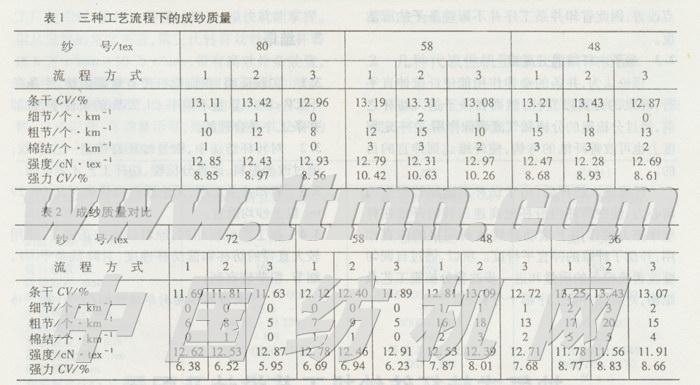 表1 三种工艺流程下的成纱质量
纱 号/tex 80 58 48
流 程 方 式 1 2 3 1 2 3 1 2 3
条干CV/% 13.42 12.96 13.19 13.31 13.08 13.21 13.43 12.87
细节/个·km⁻¹ 1 1 0 1 2
粗节/个·km⁻¹ 10 12 8 12 15 10 15 18 13
棉结/个·km⁻¹ 0
强度/cN·tex⁻¹ 12.85 12.43 12.93 12.79 12.31 12.97 12.47 12.28 12.69
强力CV/% 8.85 8.97 8.56 10.42 10.63 10.26 8.68 8.93 8.61
www.ttmn.com
表2 成纱质量对比
纱 号/tex 72 58 48 36
流 程 方 式 1 2 3 1 2 3 1 2 3 1 2 3
条干CV/% 11.69 11.81 11.63 12.12 12.40 11.89 12.81 13.09 12.72 13.25 13.43 13.07
细节/个·km⁻¹ 0 0 0 0 0 0 1 1 1 2 3 2
粗节/个·km⁻¹ 6 8 5 7 9 5 16 18 13 17 20 15
棉结/个·km⁻¹ 0 0 0 0 1 0 2 3 2 5 4
强度/cN·tex⁻¹ 12.62 12.53 12.87 12.78 12.46 12.91 12.53 12.39 12.71 11.78 11.56 11.91
强力CV/% 6.38 6.52 5.95 6.69 6.94 6.23 7.87 8.01 7.68 8.77 8.83 8.66
中国纺机网